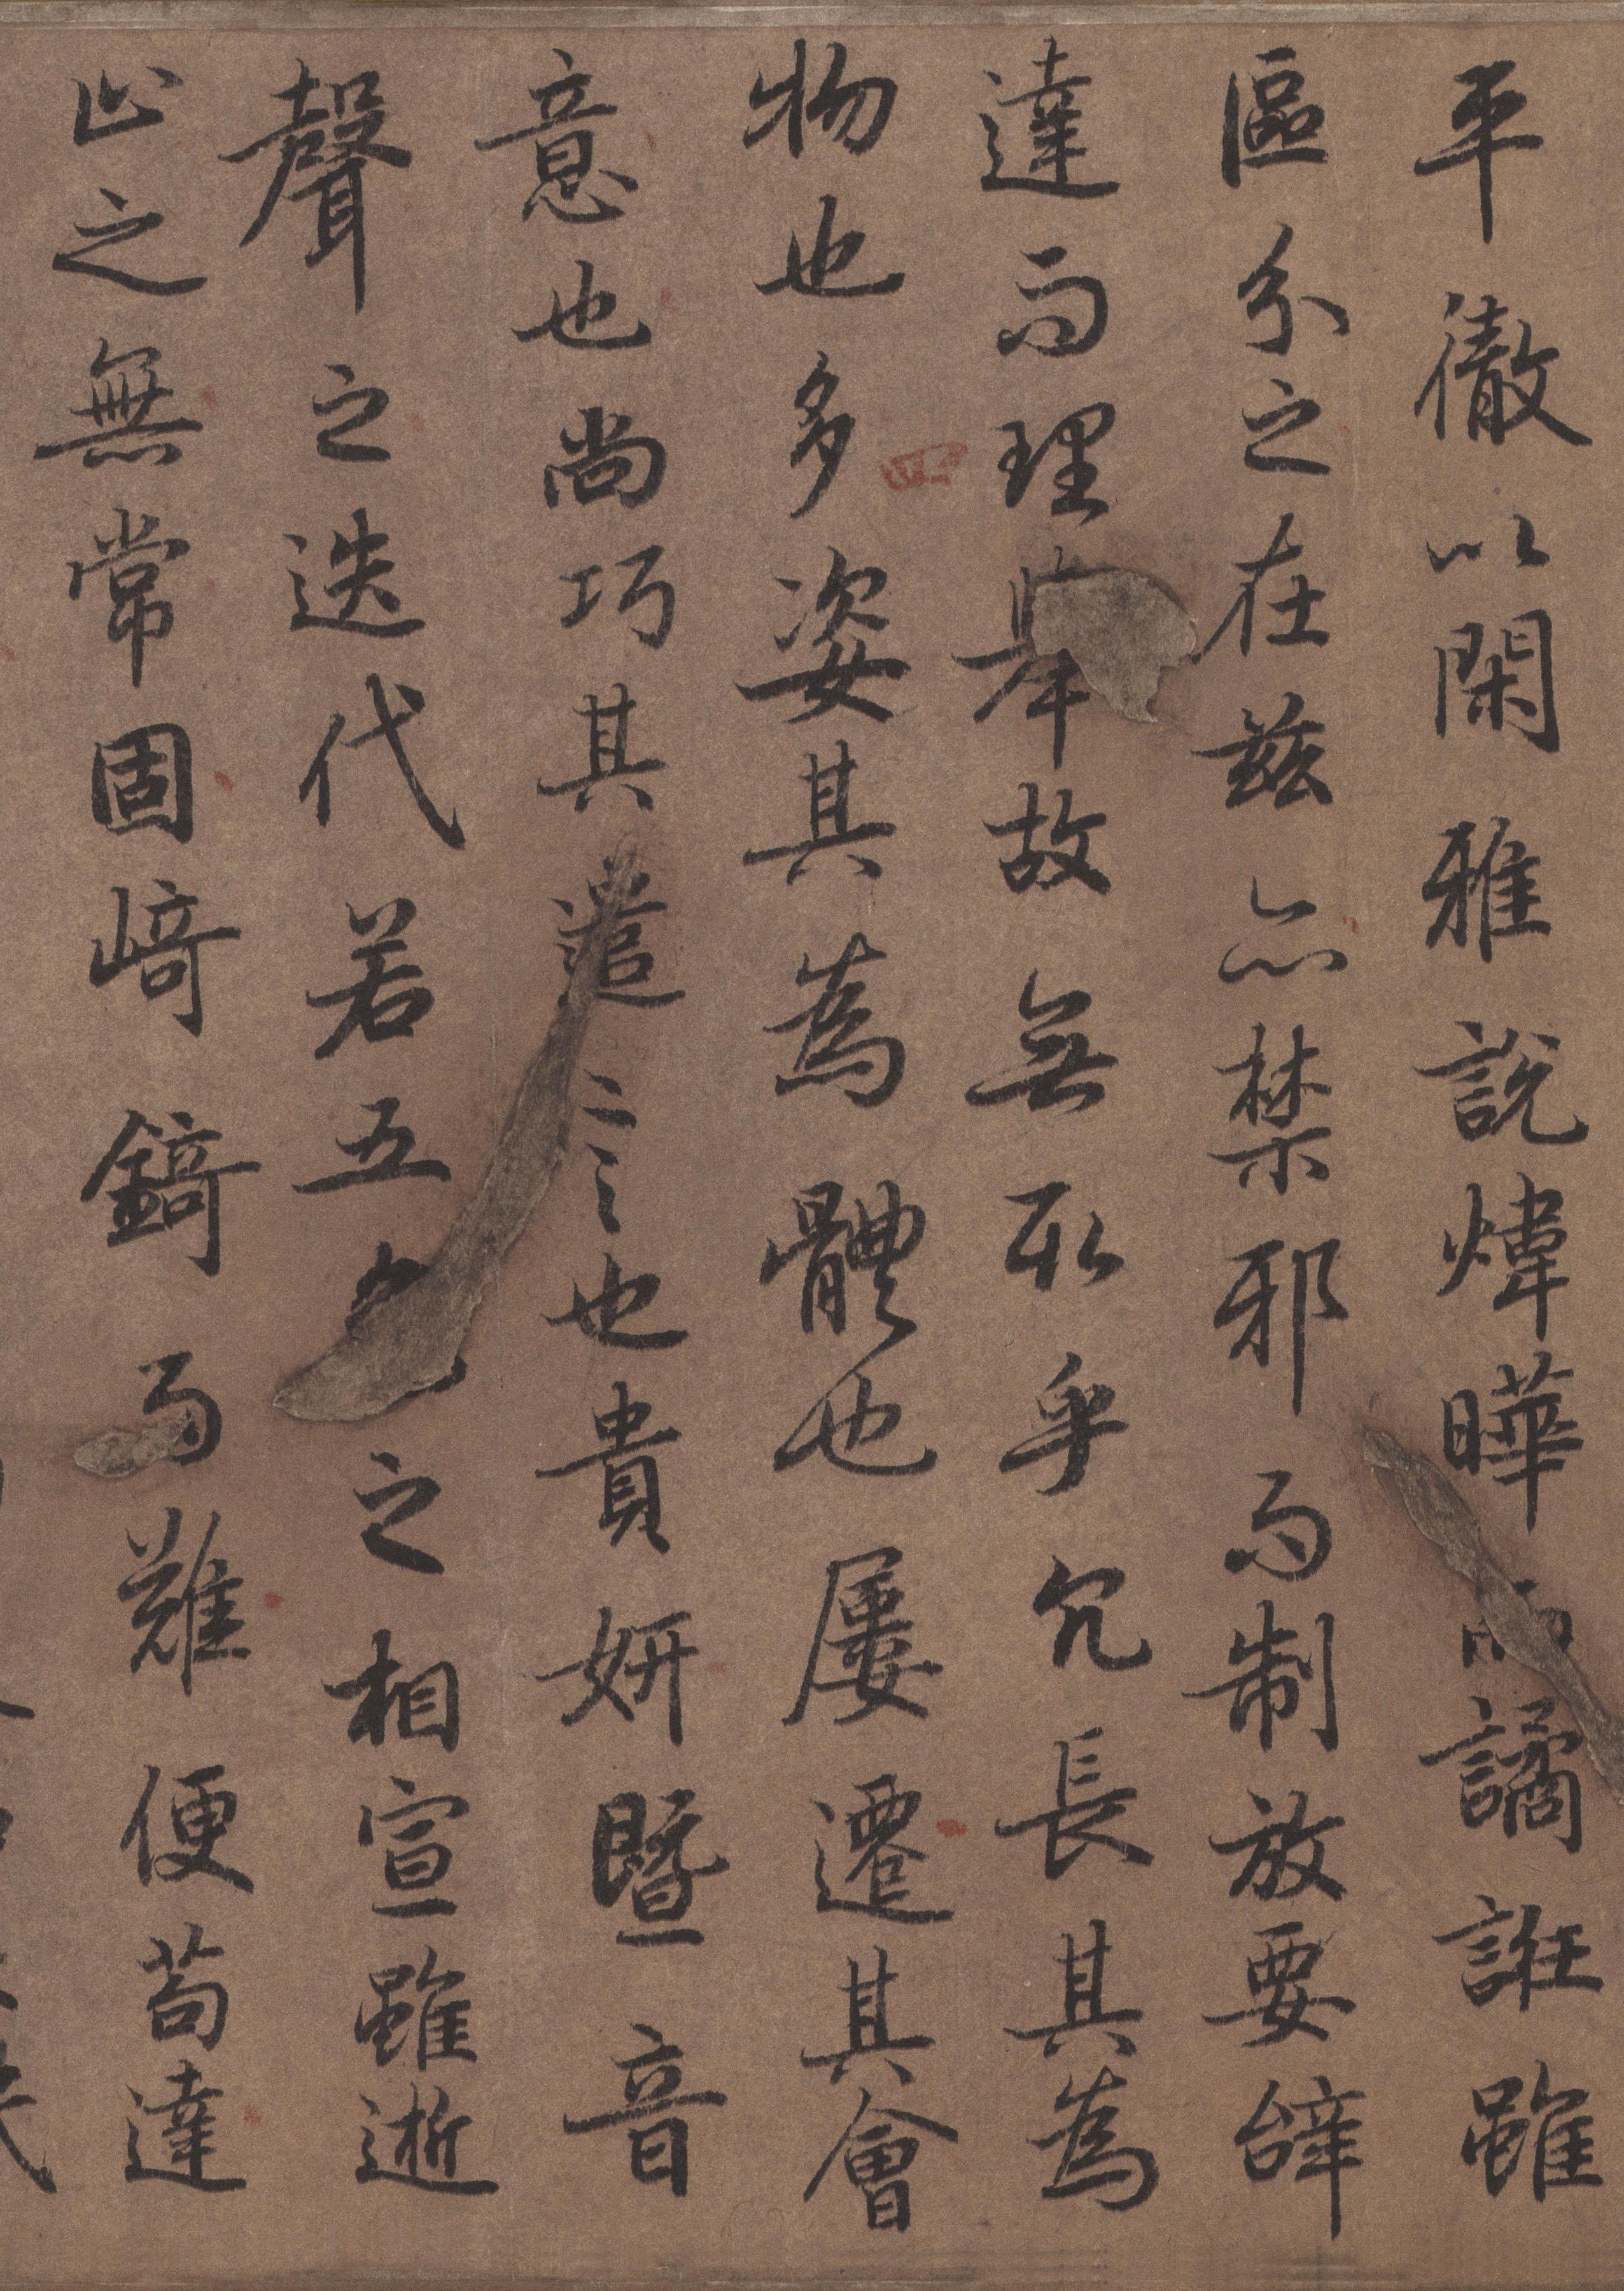 平徹以閑雅說煒曄而譎誑雖
區分之在茲亦禁邪而制放要辝
達而理舉故無取乎冗長其為
物也多姿其為體也屢遷其會
意也尚巧其遣言也貴妍暨音
聲之迭代若五色之相宣雖逝
止之無常固崎錡而難便苟達